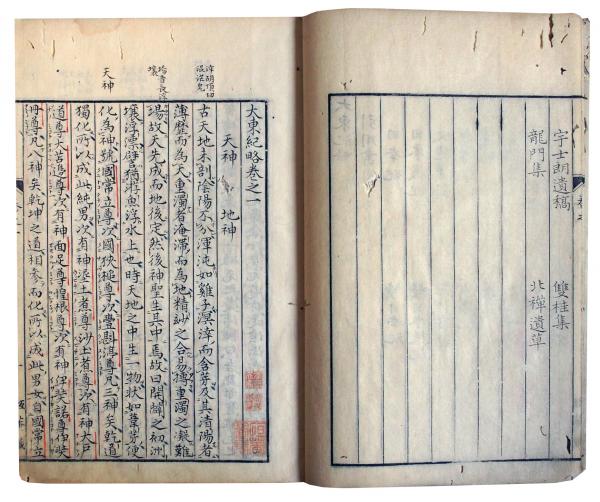 宇士朗遺稿　雙桂集
龍門集　北禅遺草
大東紀略卷之一
天神　地神
古天地未剖陰陽不分渾沌如雞子溟涬而含芽及其清陽者
薄靡而為天重濁者淹滯而為地精妙之合易摶重濁之凝難
場故天先成而地後定然後神聖生其中焉故曰開闢之初洲
壤浮漂譬猶游魚浮水上也時天地之中生一物狀如葦芽便
化為神號國常立尊次國狹槌尊次豐斟渟尊凡三神矣乾道
獨化所以成此純男次有神埿土煮尊沙土煮尊次有神大戶
道尊大苫邊尊次有神面足尊惶根尊次有神伊奘諾尊伊奘
冊尊凡八神矣乾坤之道相參而化所以成此男女自國常立
天神